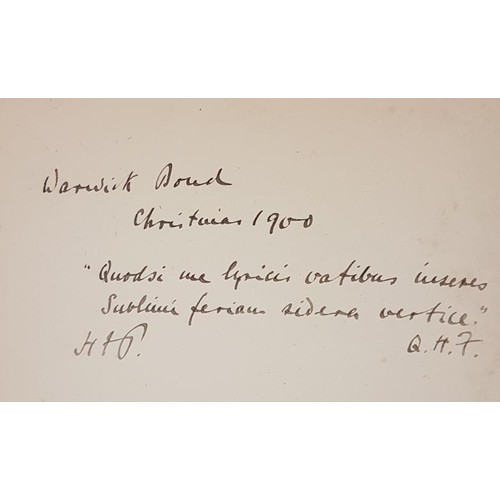 Warwick Bond
Christmas 1900
"Quodsi me lyricis vatibus inseres
Sublimi feriam sidera vertice."
Q.H.F.